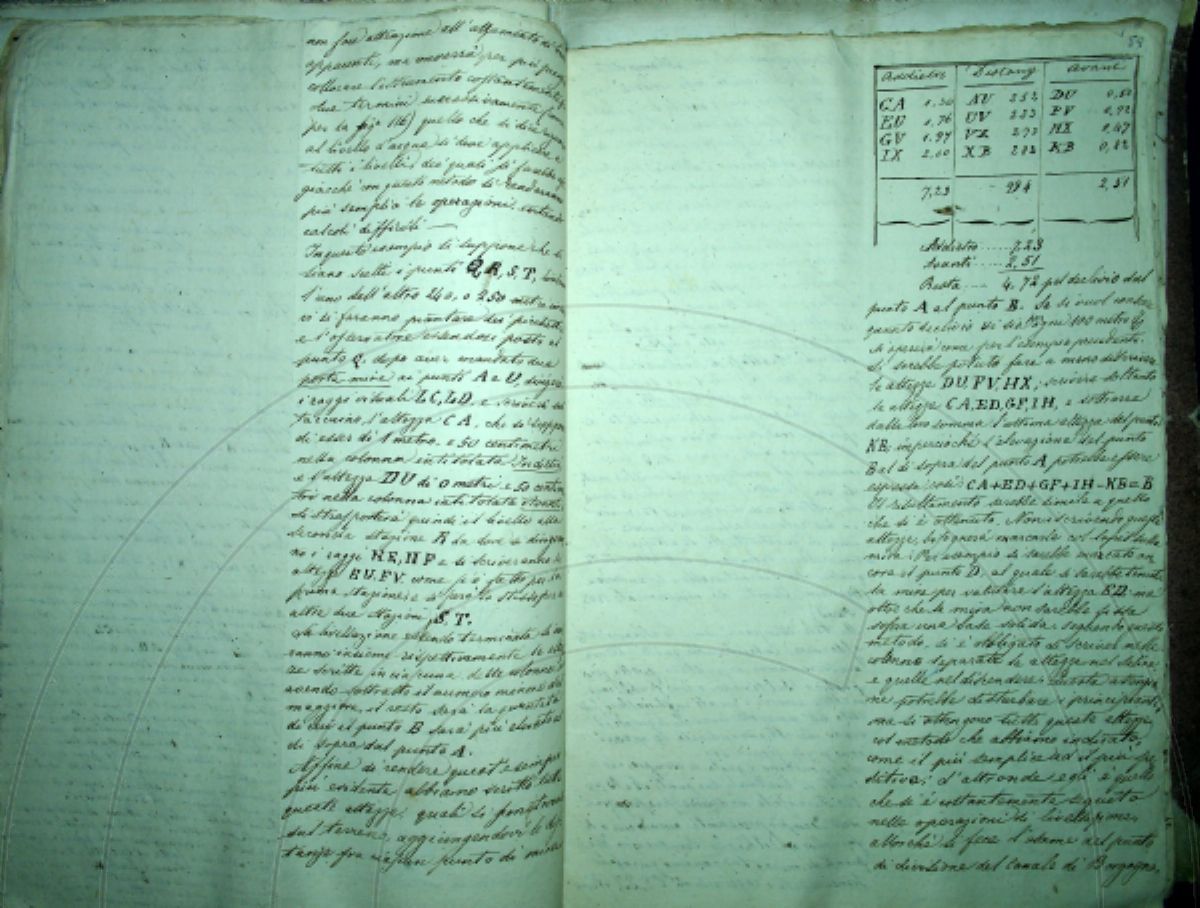 non fare attenzione all'
apparenti, ma converrà per più
collocare l'istrumento costantemente
due termini successivamente
per la fig.ª 116) quello che si dice
al livello d'acqua si deve applicare a
tutti i livelli, de' quali si
giacchè con questo metodo si renderanno
più semplici le operazioni, evitando
calcoli difficili —
In questo esempio si suppone che si
siano scelti i punti Q, R, S, T,
l'uno dall'altro 240, o 250 metri
vi si faranno piantare dei picchetti
e l'osservatore essendosi posto al
punto Q, dopo aver mandato due
porta mire ai punti A e U, dirigerà
i raggi visuali LC, LD, e scriverà sul
taccuino, l'altezza CA, che si suppone
di esser di 1 metro, e 50 centimetri
nella colonna intitolata Indietro
e l'altezza DU di 0 metri e 50 centim
tri nella colonna intitolata Avanti.
Si trasporterà quindi il livello alla
seconda stazione R da dove si dirigeran
no i raggi NE, NF e si scriveranno le
altezze EU, FV, come si è fatto per la
prima stazione; e si
altre due stazioni S. T.
La livellazione essendo terminata, si
ranno insieme rispettivamente le altez
ze scritte in ciascuna delle colonne, e
avendo sottratto il numero minore dal
maggiore, il resto sarà la quantità
di cui il punto B sarà più elevato al
di sopra dal punto A.
Affine di rendere quest'esempio
più evidente abbiamo scritto tutte
queste altezze, quali si
sul terreno, aggiungendovi le dis
tanze fra ciascun punto di mira
59
Addietro Distanz Avant
CA 1,50 AU 252 DU 0,50
EU 0,76 UV 233 FV 0,92
GV 1,97 VX 272 HX 0,47
IX 2,60 XB 284 KB 0,82
7,23 984 2,51
Addietro ..... 7,23
Avanti ..... 2,51
Resta .... 4,72 pel declivio dal
punto A al punto B. Se si vuol conoscere
quanto declivio vi sia ogni 100 metri
si opererà come per l'esempio precedente.
Si sarebbe potuto fare a meno di scrivere
le altezze DU, FV, HX, scrivere soltanto
le altezze CA, ED, GF, IH, e sottrarre
dalla loro somma l'ultima altezza del punto
KB; imperciochè l'elevazione del punto
B al di sopra del punto A potrebbe essere
espressa così: CA+ED+GF+IH-KB=B
Il risultamento sarebbe simile a quello
che si è ottenuto. Non iscrivendo queste
altezze, bisognerà marcarle col lapis sulla
mira: Per esempio si sarebbe marcato an
cora il punto D, al quale si sarebbe
la mira per valutare l'altezza ED: ma
oltre che la mira non sarebbe fissa
sopra una base solida, seguendo questo
metodo, si è obbligato di scrivere nelle
colonne separate le altezze nel salire,
e quelle nel discendere;
ne potrebbe disturbare i principianti,
ma si ottengono tutte queste altezze
col metodo che abbiamo indicato,
come il più semplice, ed il più spe
ditivo; d'altronde egli è quello
che si è costantemente seguito
nelle operazioni di livellazione,
allorchè si fece l'esame nel punto
di divisione del Canale di Borgogna.